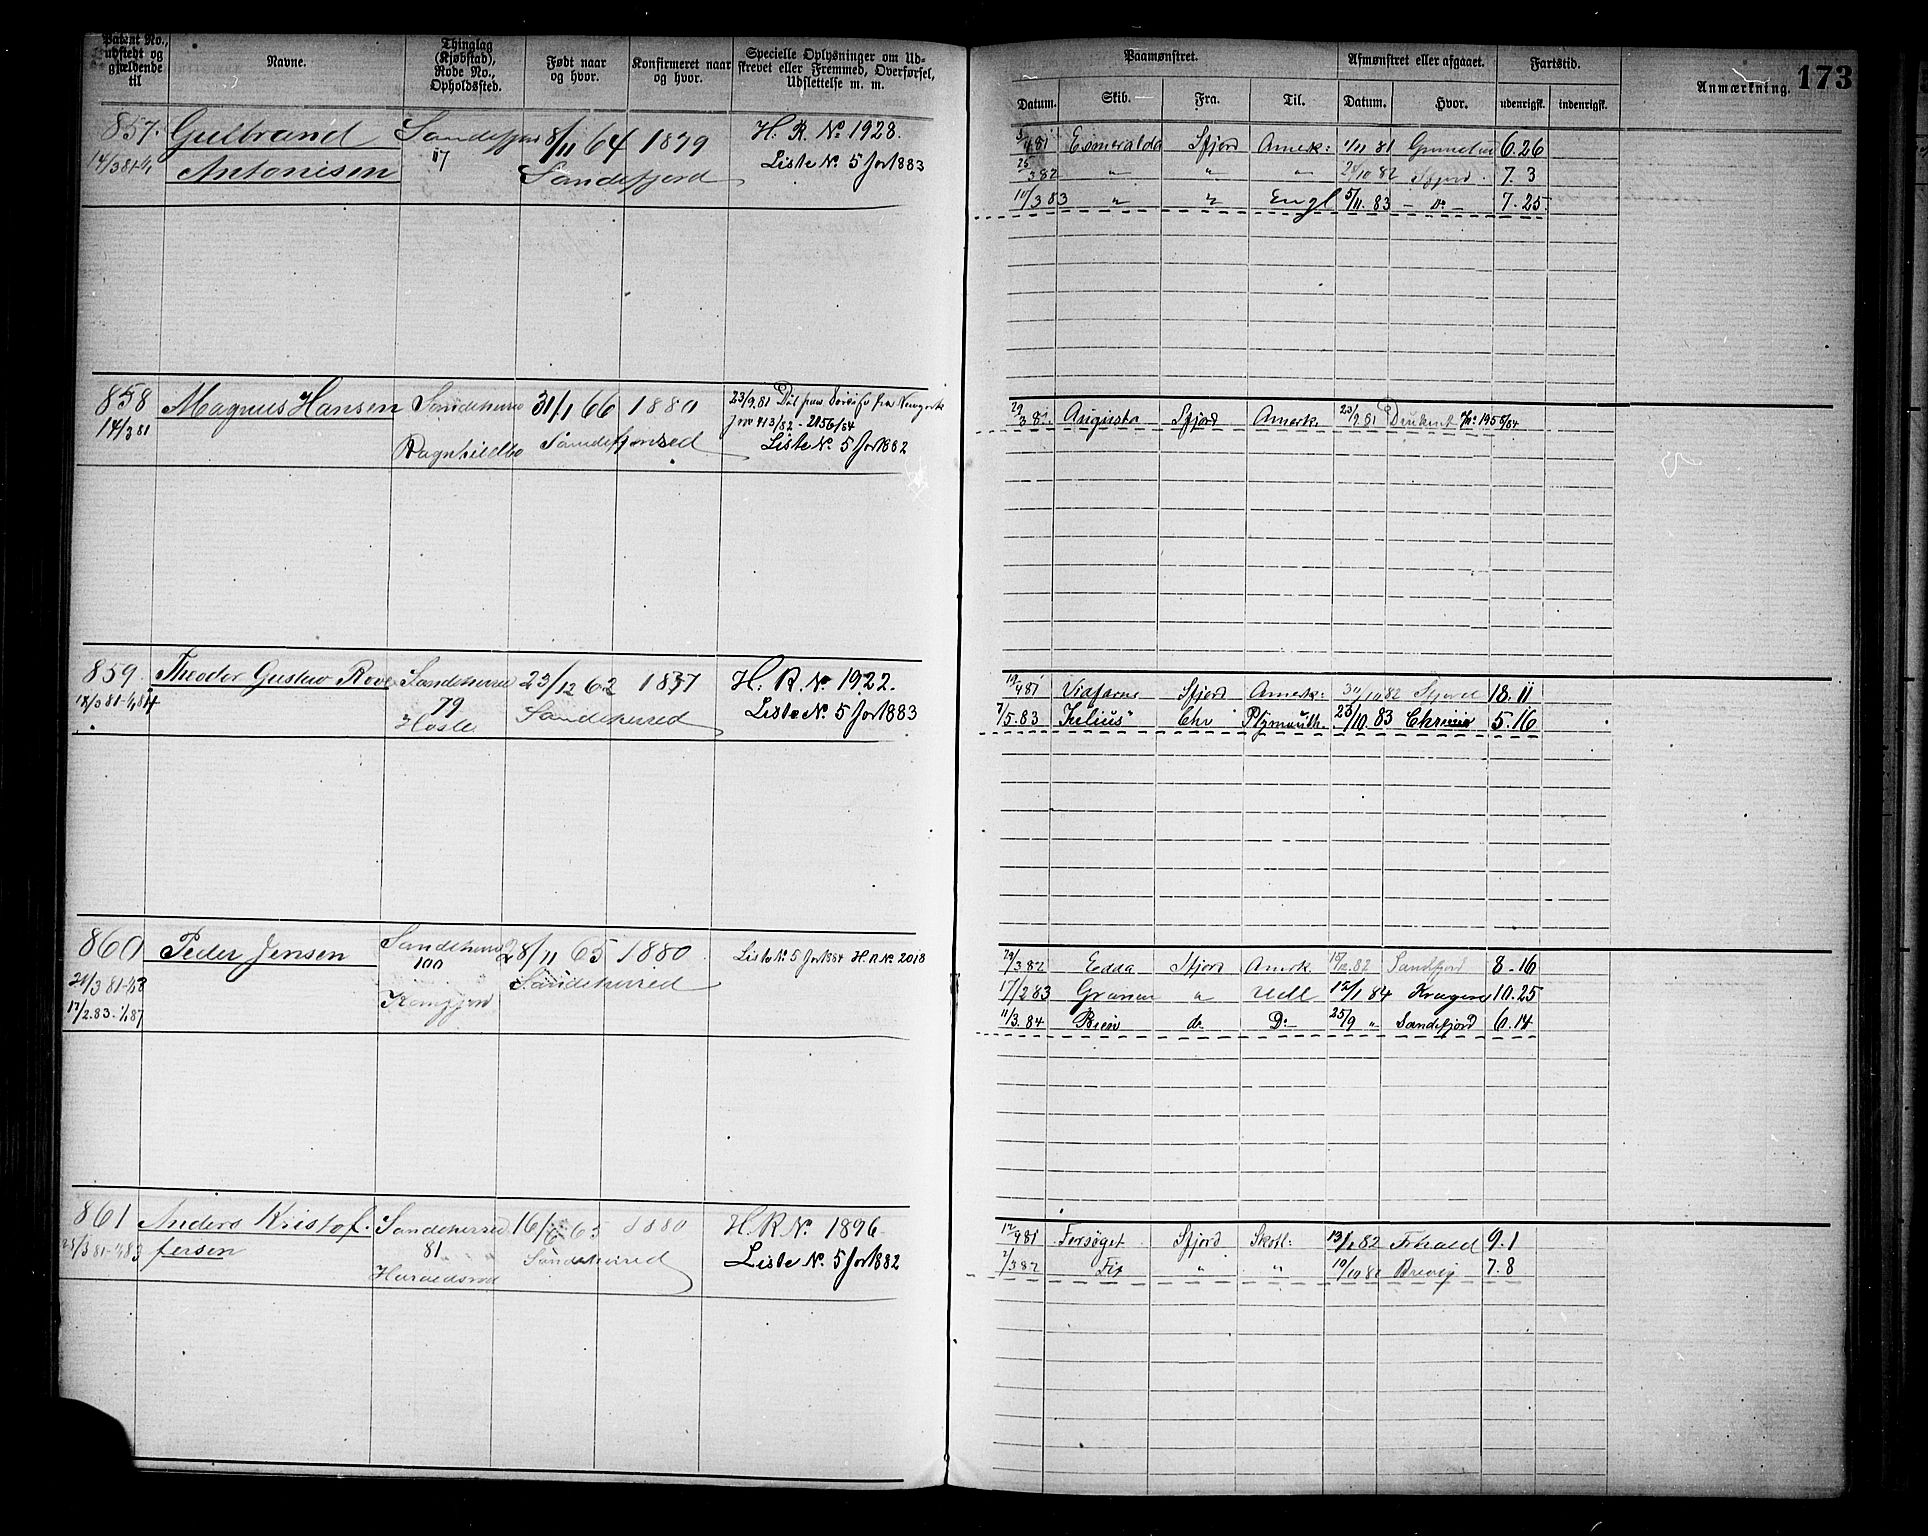 173
Patent No., udstedt og gjældende til
Navne.
Thinglag (Kjøbstad), Rode No., Opholdssted.
Født naar og hvor.
Konfirmeret naar og hvor.
Specielle Oplysninger om Udskrevet eller Fremmed, Overførsel, Udslettelse m. m.
Paamønstret.
Afmønstret eller afgaaet.
Fartstid.
Anmærkning.
Datum. Skib. Fra. Til. Datum. Hvor. udenrigsk. indenrigsk.
857. Gulbrand Sandefjord 8/11 64 1879 H. R. No 1928.
14/3 81 Antonisen 17 Sandefjord Liste No. 5 for 1883
Esmeralda Sfjord Amek: 4/11 81 6.26
25/3 82 " " " 24/10 82 Sfjord 7.3
11/3 83 " " Engl 5/11. 83 - Do - 7.25
858 Magnus Hansen Sandeherred 31/1 66 1880 23/9.81
14/3 81 Sandeherred J no 413/82 - 2156/84
Liste No. 5 for 1882
29/3 81 Augusta Sfjord Amerk. 23/9 81
859 Theodor Gustav Rove Sandeherred 23/12 62 1877 H. R. No. 1922.
79 Sandeherred Liste No. 5 for 1883
Hasle
19/4 81 Vidfarne Sfjord Amek: 30/10 82 Sfjord 18.11
7/5.83 "Julius" Chr Plymouth 23/10. 83 5.16
860 Peder Jensen Sandeherred 28/11 65 1880 Liste No. 5 for 1884 H. R. No. 2018
21/3 81 100 Sandeherred
17/2.83. 1/1 87
29/3 82 Edda Sfjord Amerk 82 Sandfjord 8-16
17/2 83 " Udl 12/1 84 Kragerø 10.25
11/3. 84 do Do 25/9 " Sandefjord 6.14
861 Anders Kristof- Sandeherred 16/6 65 1880 H. R. No. 1896
fersen 81 Sandeherred Liste No. 5 for 1882
Haraldsrød
12/4 81 Forsøget Sfjord Skotl: 13/1 82 9.1
2/3 82 Fix " " 10/10 82 Brevig 7.8